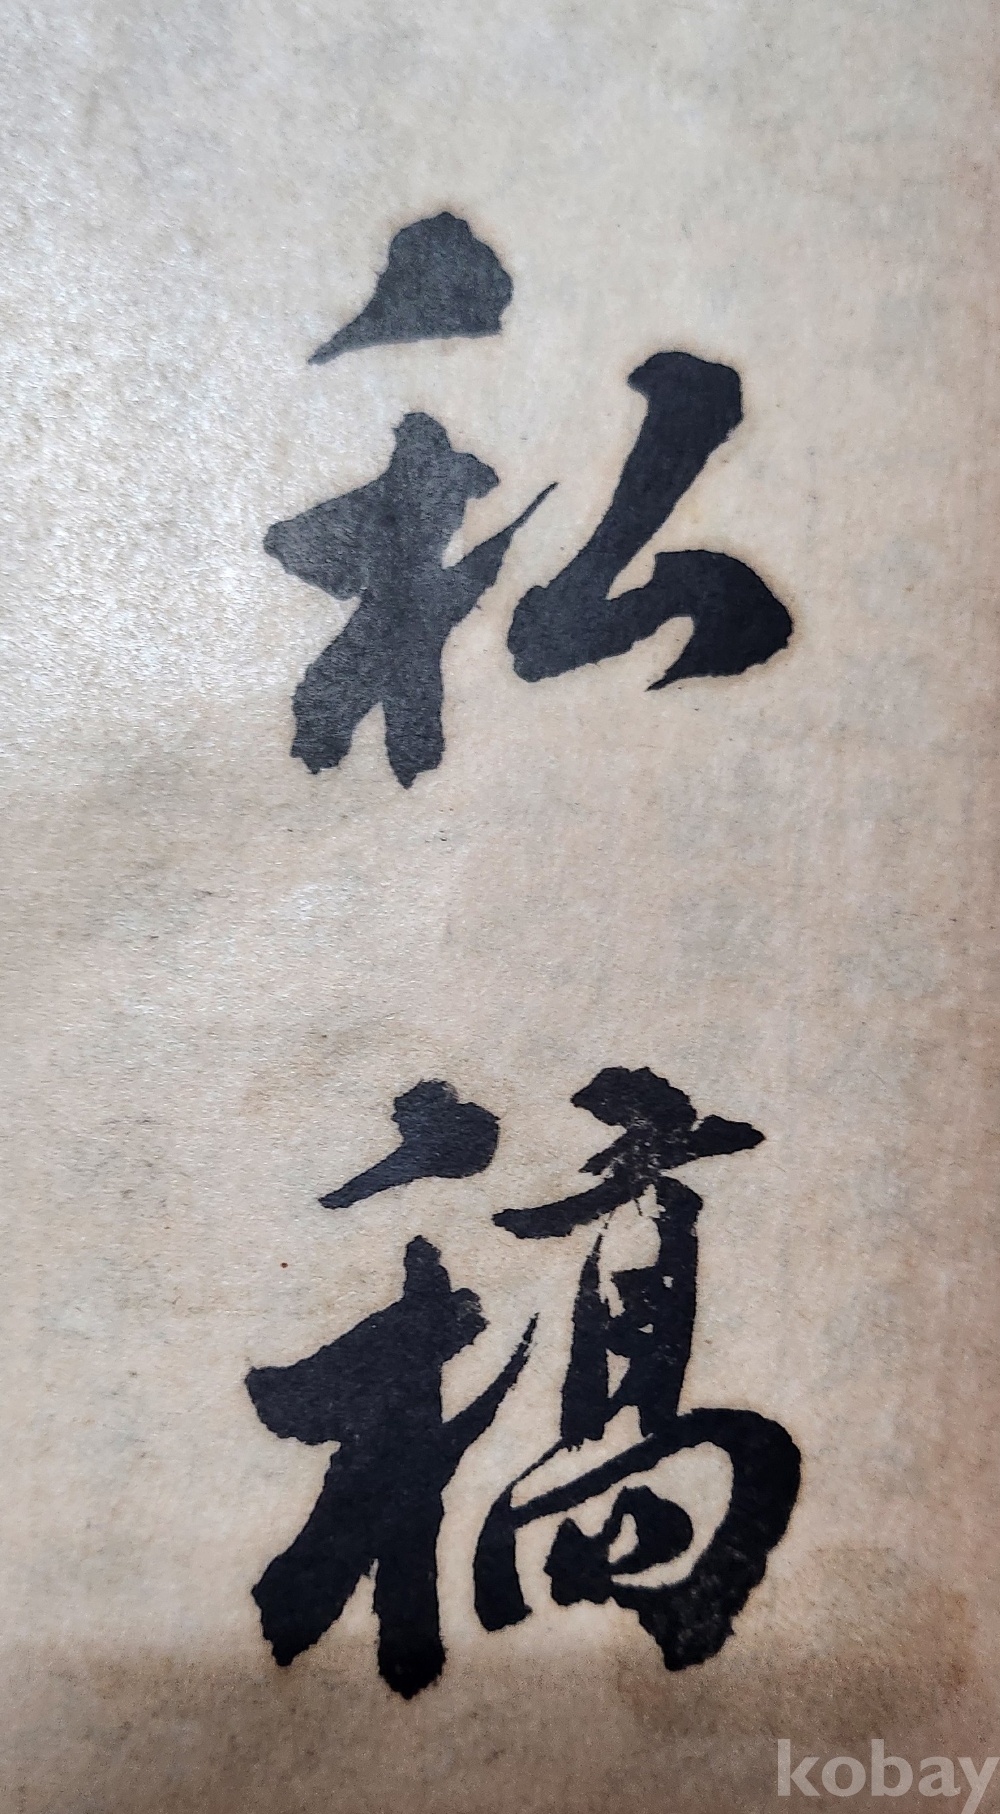 私稿
kobay